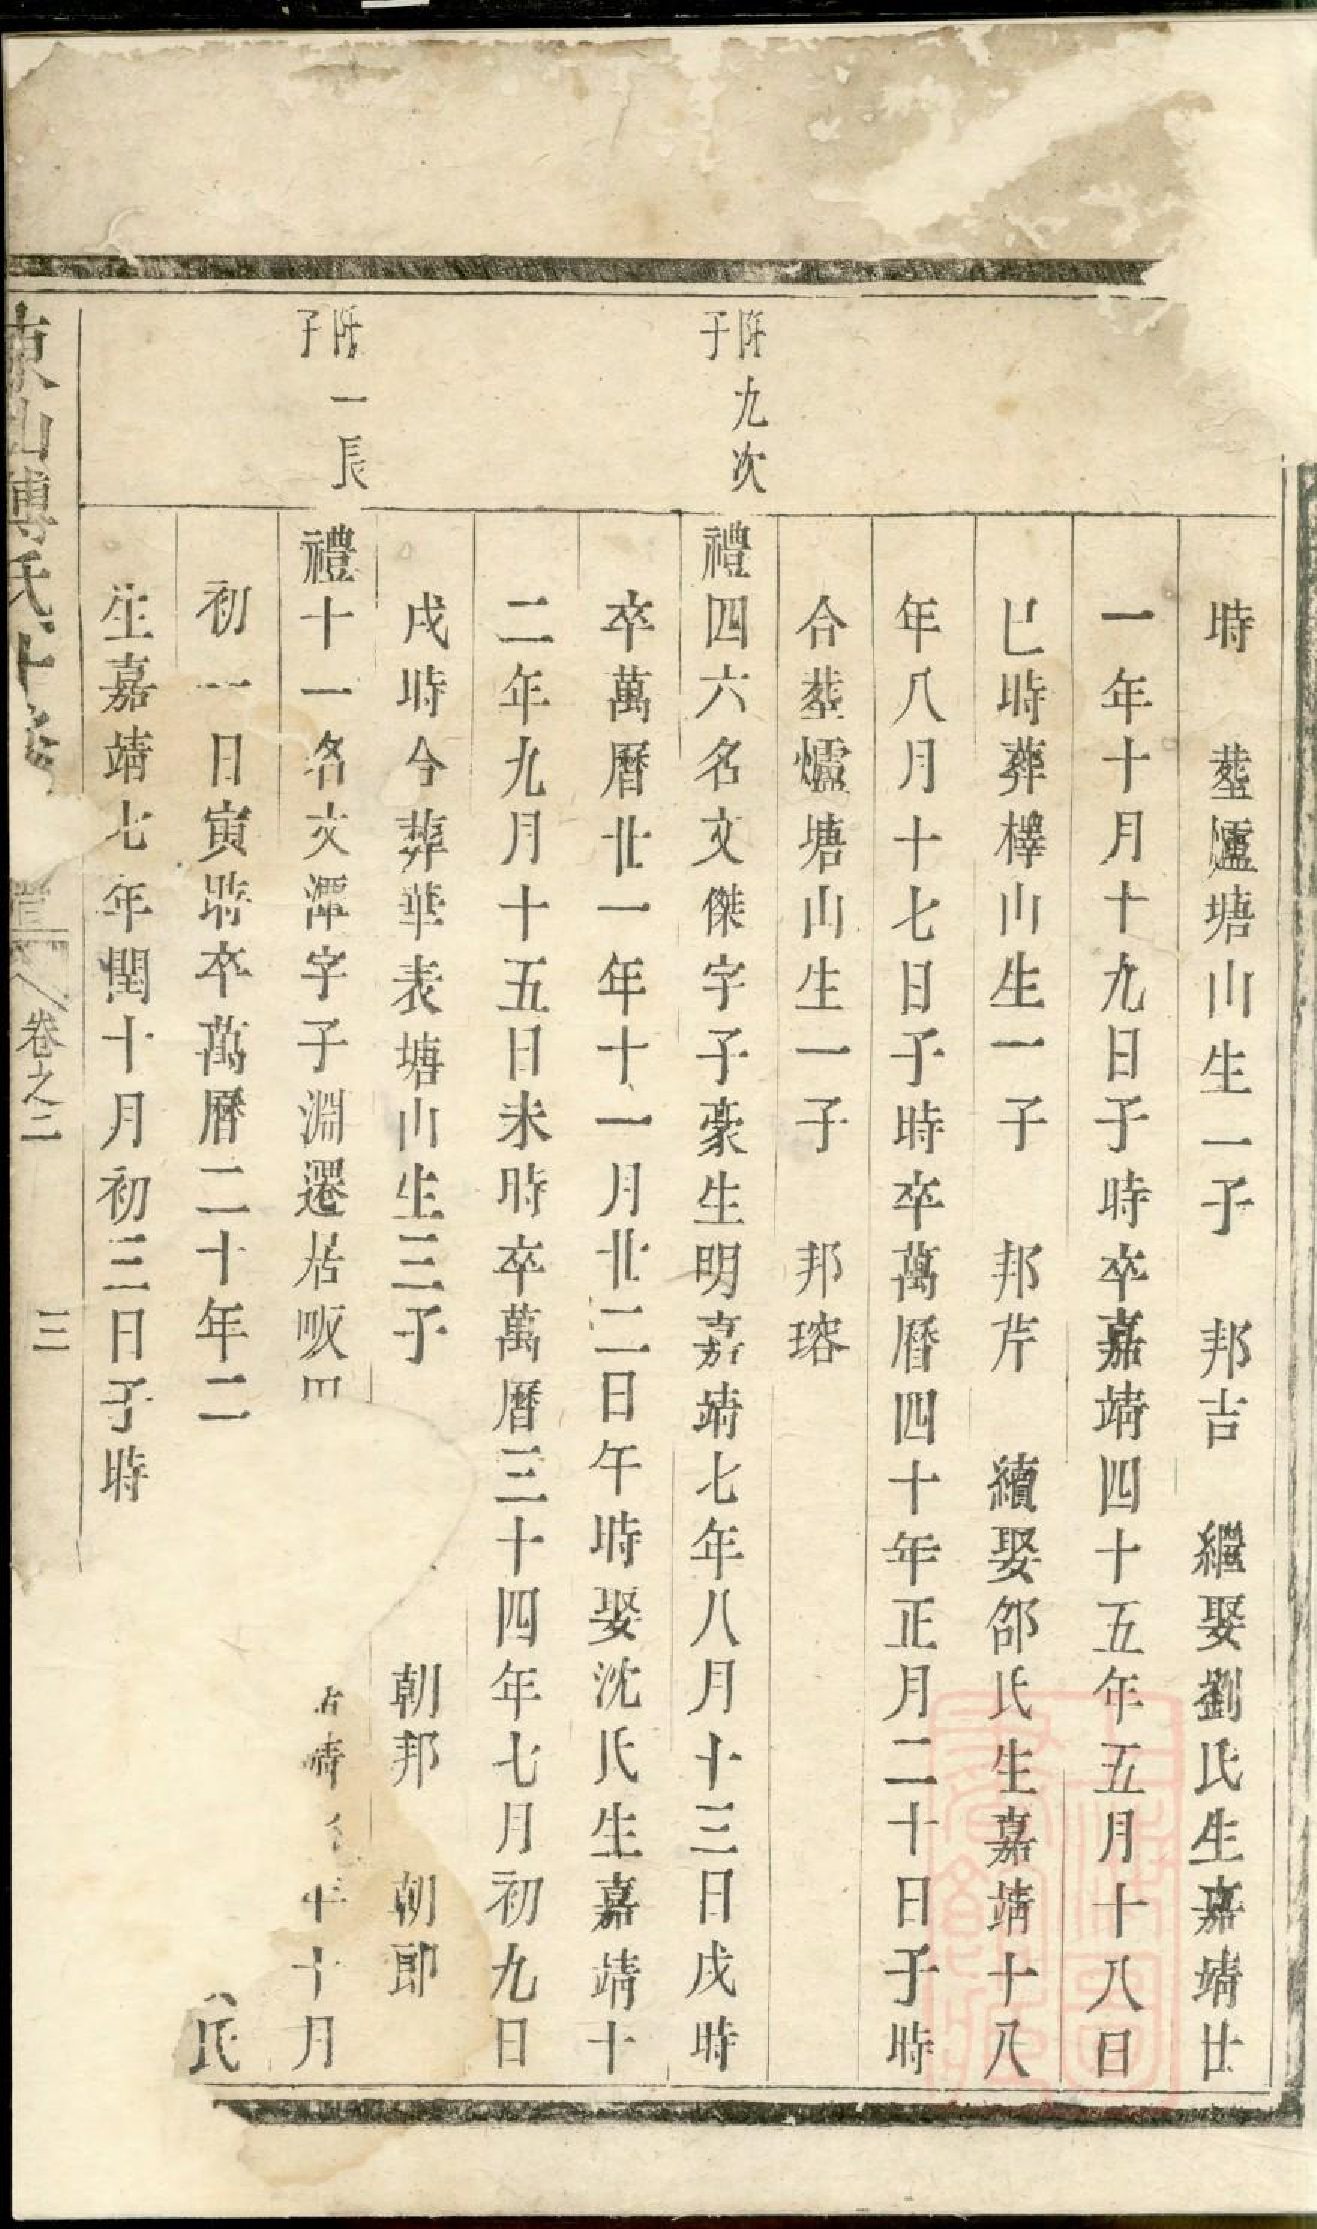 時 塟爐塘山生一子 邦吉 繼娶劉氏生嘉靖廿
一年十月十九日子時卒嘉靖四十五年五月十八日
巳時葬檡山生一子 邦芹 續娶邵氏生嘉靖十八
年八月十七日子時卒萬曆四十年正月二十日子時
合塟爐塘山生一子 邦瑢
九次
子
禮四六名文傑字子豪生明嘉靖七年八月十三日戌時
卒萬曆廿一年十一月廿二日午時娶沈氏生嘉靖十
二年九月十五日未時卒萬曆三十四年七月初九日
戌時合葬華表塘山生三子 朝邦 朝郎
一長
子
禮十一名文潭字子淵遷居 年十月
初一日寅時卒萬曆二十年二 氏
生嘉靖七年閏十月初三日子時
東山傅氏 卷之二 三